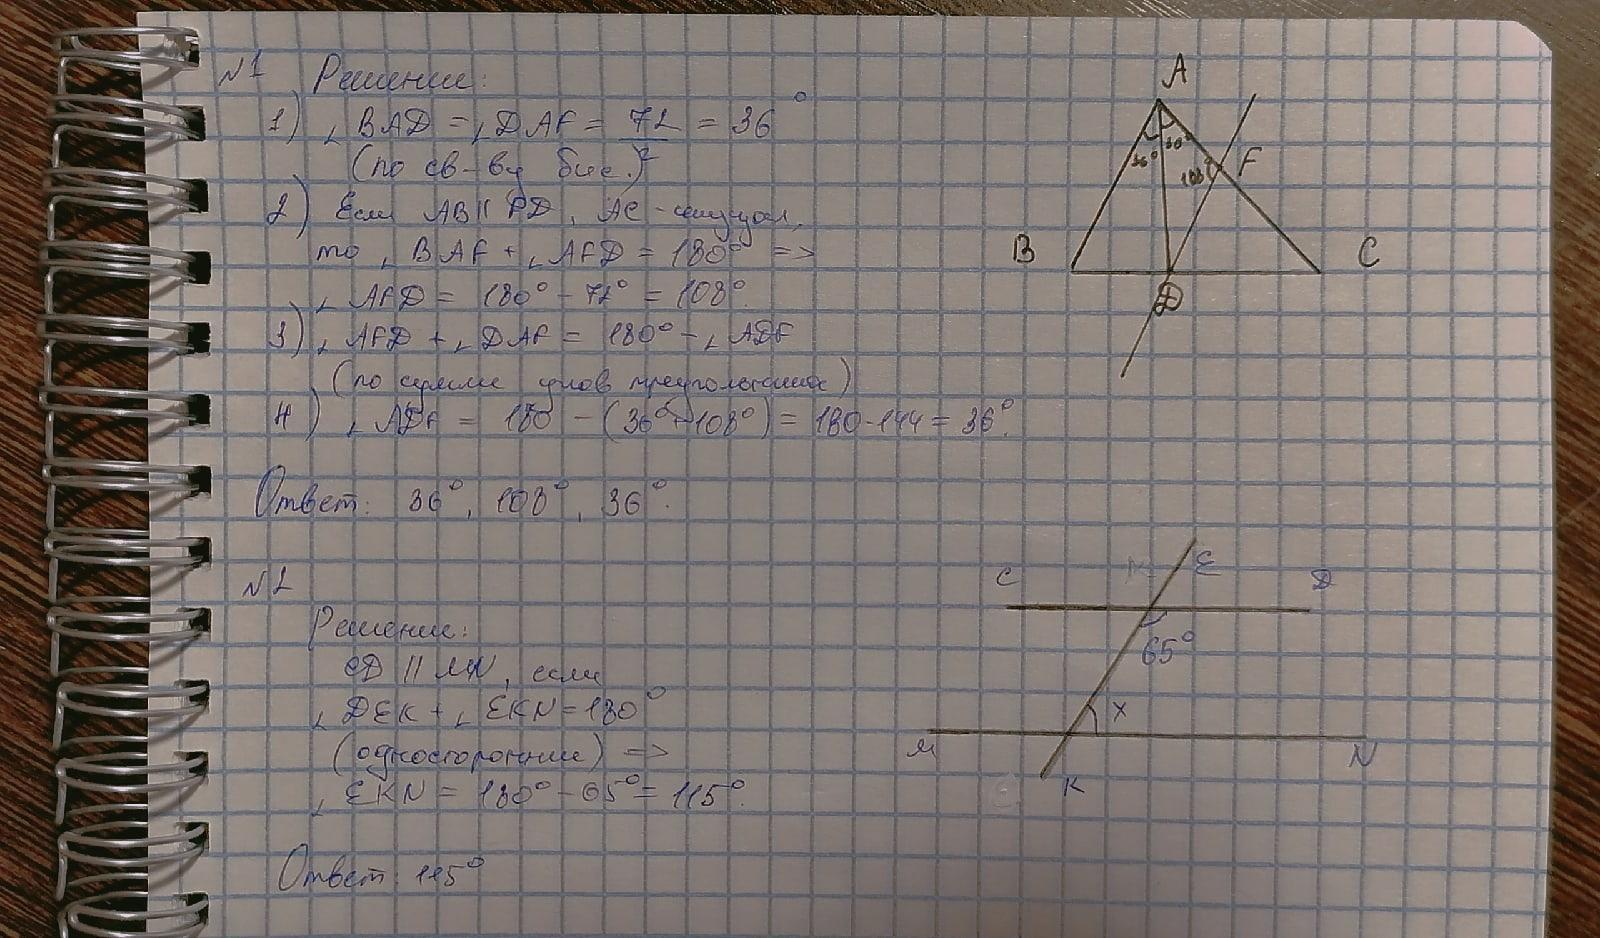 N1 Решение:
1) ∠BAD = ∠DAF = 72/2 = 36°
(по св-ву бис.)
2) Если AB || FD, AC - секущая,
то ∠BAF + ∠AFD = 180° =>
∠AFD = 180° - 72° = 108°.
3) ∠AFD + ∠DAF = 180° - ∠ADF
(по сумме углов треугольника)
4) ∠ADF = 180 - (36° + 108°) = 180 - 144 = 36°.
Ответ: 36°, 108°, 36°.
A
36°
108°
F
B
C
D
N2
Решение:
CD || MN, если
∠DEK + ∠EKN = 180°
(односторонние) =>
∠EKN = 180° - 65° = 115°.
Ответ: 115°
C
E
D
65°
x
M
N
K